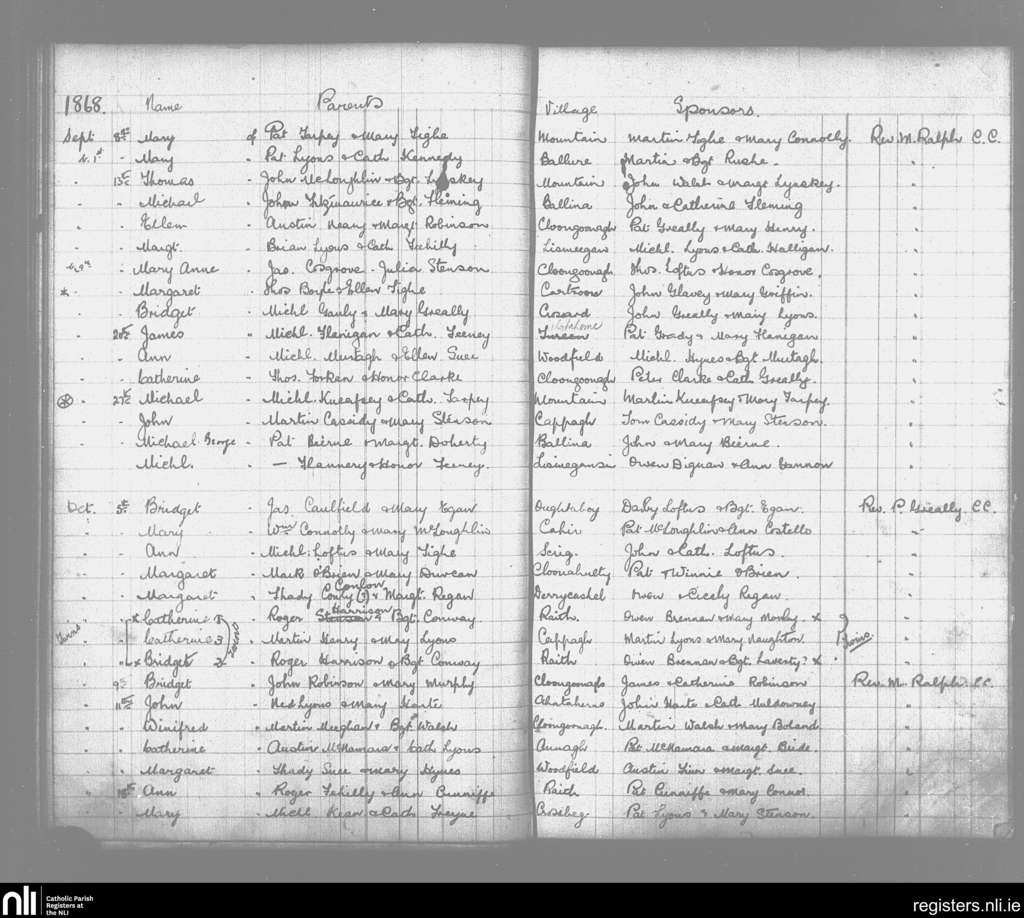 1868. Name Parents Village Sponsors.
Sept 8th Mary of Pat Tarpey & Mary Tighe Mountain Martin Tighe & Mary Connolly. Rev. M. Ralph C. C.
" Mary " Pat Lyons & Cath Kennedy Ballure Martin & Bgt Rushe. "
" 13th Thomas " John McLoughlin & Bgt. Lyskey Mountain John Walsh & Margt Lynskey. "
" " Michael " John Fitzmaurice & Bgt. Fleming Ballina John & Catherine Fleming "
" " Ellen " Austin Neary & Margt Robinson Cloongoonagh Pat Greally & Mary Henry. "
" " Margt. " Brian Lyons & Cath Feehilly Lismeegaun Michl. Lyons & Cath. Halligan. "
" Mary Anne " Jas. Cosgrove. Julia Stenson Cloongoonagh Thos. Loftus & Honor Cosgrove. "
* " " Margaret " Thos Boyle & Ellen Tighe Cartroon John Glavey & Mary Griffin. "
" " Bridget " Michl Ganly & Mary Greally Crossard John Greally & Mary Lyons. "
" 20th James " Michl. Flanigan & Cath. Feeney Tureen Pat Grady & Mary Flanigan "
" " Ann " Michl. Murtagh & Ellen Suee Woodfield Michl. Hynes & Bgt Murtagh. "
" " Catherine " Thos. Forken & Honor Clarke Cloongoonagh Peter Clarke & Cath Greally. "
" 27th Michael " Michl. Kneafsey & Cath. Tarpey Mountain Martin Kneafsey & Mary Tarpey. "
" " John " Martin Cassidy & Mary Stenson Cappagh Tom Cassidy & Mary Stenson. "
" " Michael George " Pat Beirne & Margt. Doherty Ballina John & Mary Beirne. "
" " Michl. " — Flannery & Honor Feeney. Lismegansi Owen Dignan & Ann Cannon "
Oct. 5th Bridget " Jas. Caulfield & Mary Egan Oughtaboy Darby Loftus & Bgt. Egan. Rev. P. Greally C.C.
" " Mary " Wm Connolly & Mary McLoughlin Cahir Pat McLoughlin & Ann Costello "
" " Ann " Michl. Loftus & Mary Tighe Scrig. John & Cath. Loftus "
" " Margaret " Mark O'Brien & Mary Duncan Cloonahulty Pat & Winnie O'Brien "
Conlon
" " Margaret " Thady Conry (?) & Margt. Regan Derrycashel Owen & Cicely Regan. "
Harrison
" " x Catherine " Roger Stenson & Bgt. Conway. Raith. Owen Brennan & Mary Morley. x
Twins " " Catherine 3 " Martin Henry & Mary Lyons Cappagh Martin Lyons & Mary Naughton.
" " x Bridget 2 x " Roger Harrison & Bgt Conway Raith Owen Brennan & Bgt. Laventy? x "
" 9th Bridget " John Robinson & Mary Murphy Cloongoonafs James & Catherine Robinson Rev. M. Ralph C.C.
" 11th John " Ned Lyons & Mary Harte Ahataherns John Harte & Cath Muldowney "
" " Winifred " Martin Meeghan & Bgt. Walsh Cloongoonagh. Martin Walsh & Mary Boland "
" " Catherine " Austin McNamara & Cath Lyons Annagh Pat McNamara & Margt. Bride. "
" " Margaret " Thady Suee & Mary Hynes Woodfield Austin Finn & Margt. Suee. "
" 18th Ann " Roger Fahilly & Ann Cunniffe Raith Pat Cunniffe & Mary Connor. "
" " Mary " Michl Kean & Cath Freyne Crossbeg Pat Lyons & Mary Stenson. "
nli Catholic Parish Registers at the NLI
registers.nli.ie